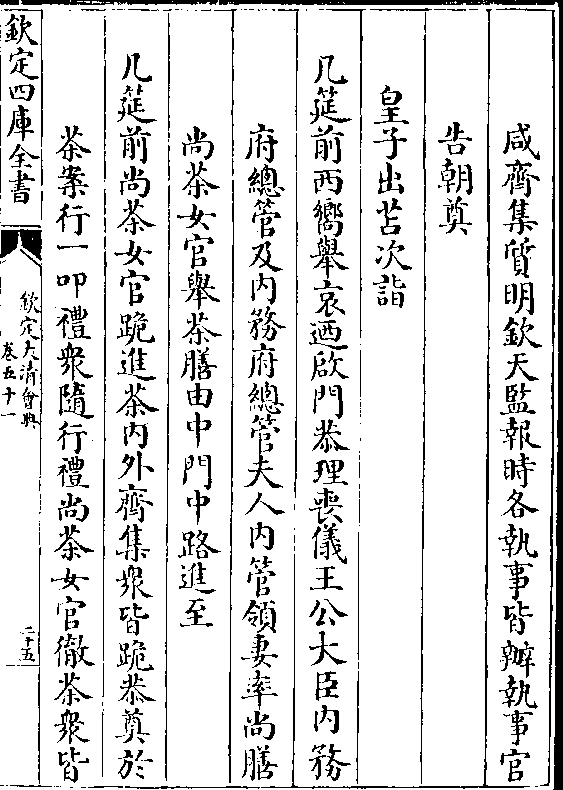 咸齊集質明欽天監報時各執事皆辦執事官
告朝奠
皇子出苫次詣
几筵前西嚮舉哀廼啟門恭理喪儀王公大臣內務
府總管及內務府總管夫人內管領妻率尚膳
尚茶女官舉茶膳由中門中路進至
几筵前尚茶女官跪進茶內外齊集衆皆跪恭奠於
茶案行一叩禮衆隨行禮尚茶女官徹茶衆皆
欽定四庫全書
欽定大清會典
卷五十一
二十五